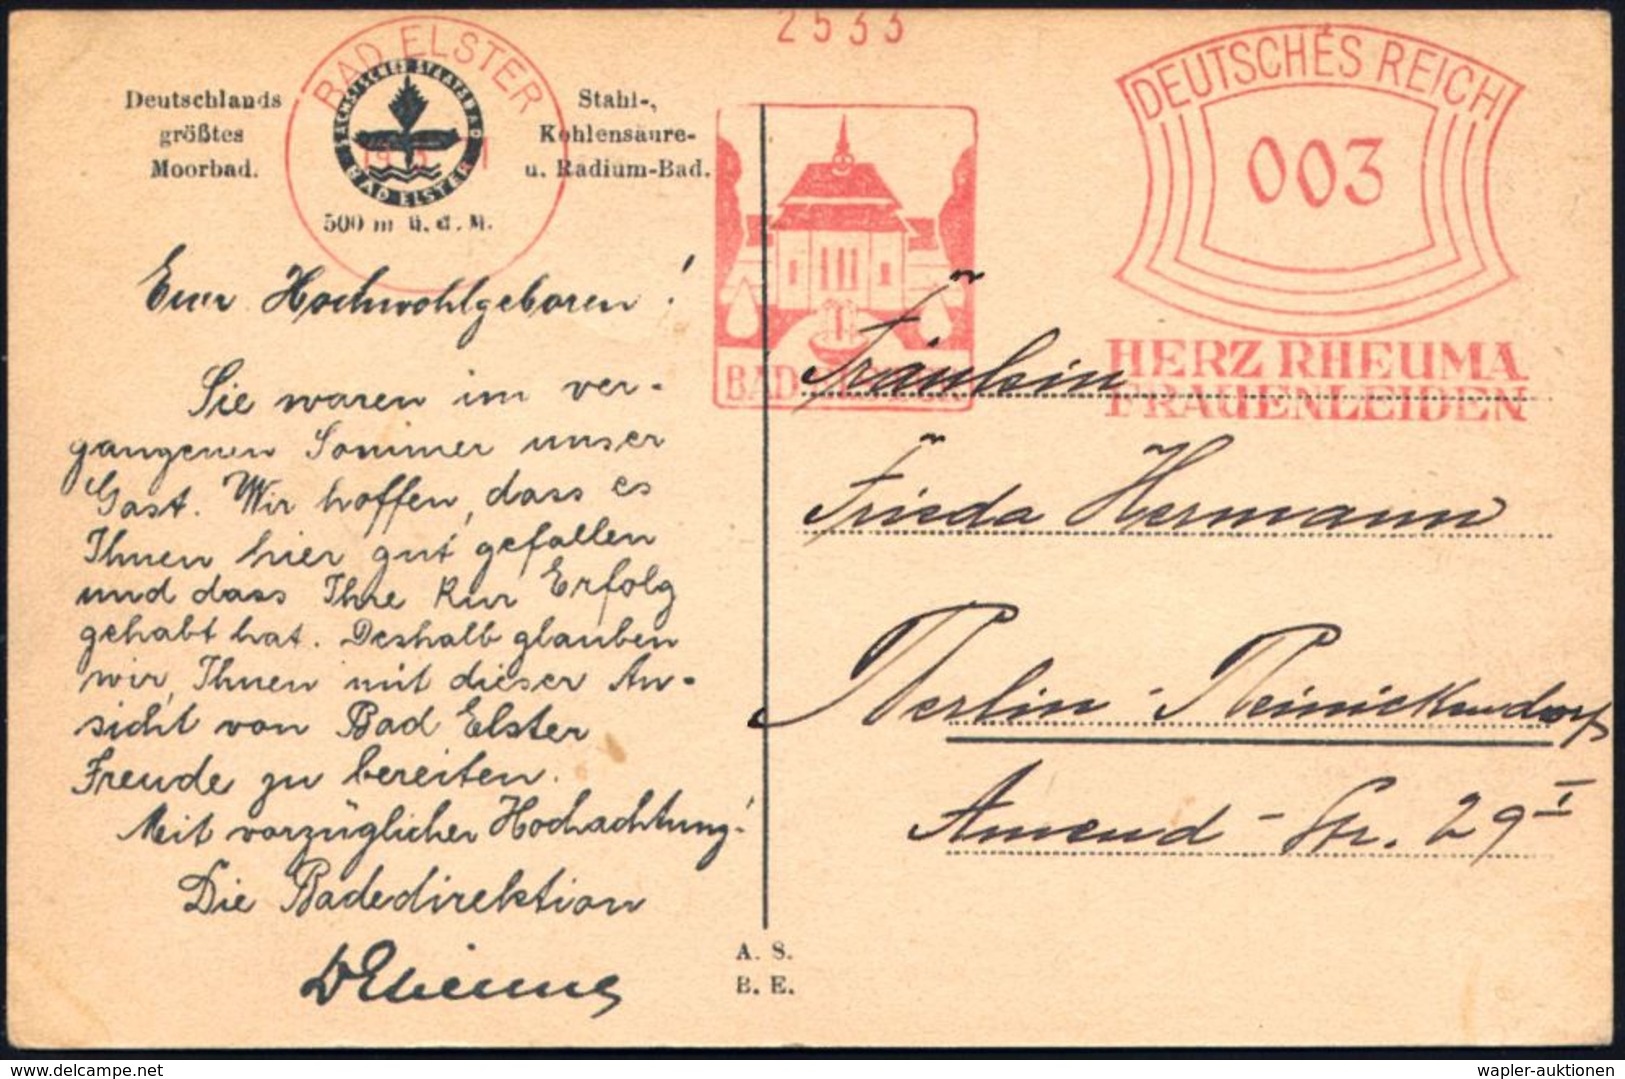 2533
BAD ELSTER
DEUTSCHES REICH
003
HERZ RHEUMA
FRAUENLEIDEN
BAD ELSTER
Deutschlands
größtes
Moorbad.
SÄCHSISCHES STAATSBAD
BAD ELSTER
Stahl-,
Kohlensäure-
u. Radium-Bad.
500 m ü. d. M.
Euer Hochwohlgeboren!
Sie waren im ver-
gangenen Sommer unser
Gast. Wir hoffen, dass es
Ihnen hier gut gefallen
und dass Ihre Kur Erfolg
gehabt hat. Deshalb glauben
wir, Ihnen mit dieser An-
sicht von Bad Elster
Freude zu bereiten.
Mit vorzüglicher Hochachtung!
Die Badedirektion
A. S.
B. E.
Fräulein
Frieda Hermann
Berlin-Reinickendorf
Amend-Str. 29 I
wapler-auktionen